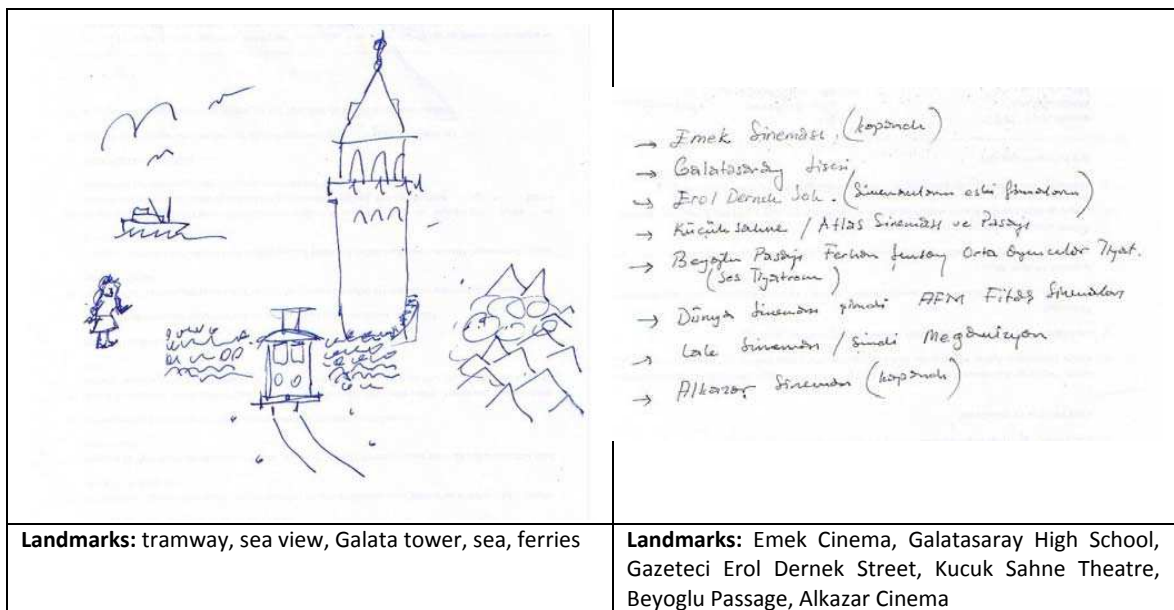 → Emek Sineması. (kapandı)
→ Galatasaray Lisesi
→ Erol Dernek Sok. (Sinemacıların eski firmaların)
→ Küçük sahne / Atlas Sineması ve Pasajı
→ Beyoğlu Pasajı Ferhan Şensoy Orta Oyuncular Tiyat.
(Ses Tiyatrosu)
→ Dünya Sineması şimdi AFM Fitaş Sinemaları
→ Lale Sineması / Şimdi Megavizyon
→ Alkazar Sineması (kapandı)
Landmarks: tramway, sea view, Galata tower, sea, ferries
Landmarks: Emek Cinema, Galatasaray High School,
Gazeteci Erol Dernek Street, Kucuk Sahne Theatre,
Beyoglu Passage, Alkazar Cinema